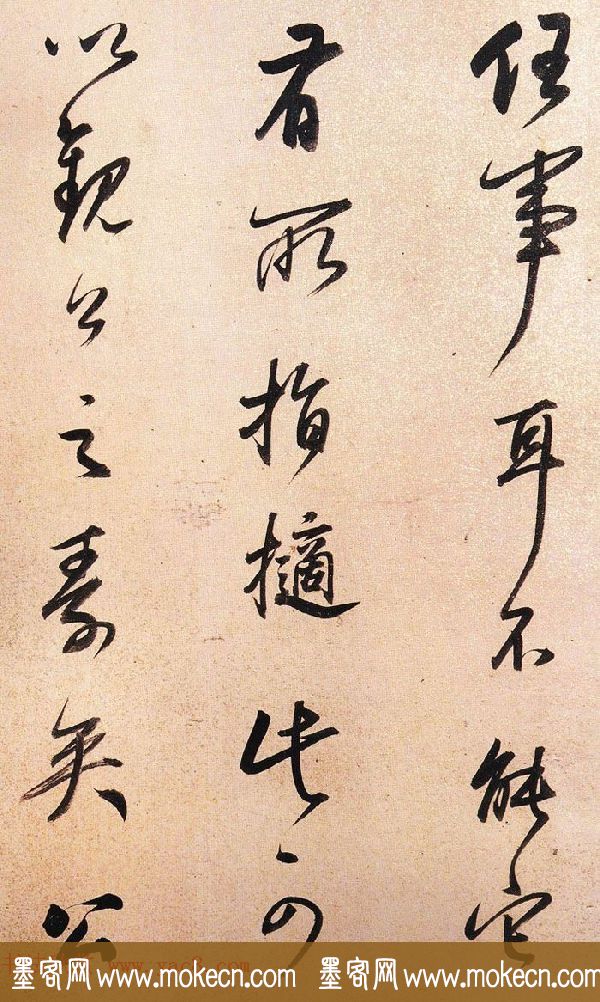 任事耳不能它
有所指擿此可
以觀公之壽矣公
墨客网 www.mokecn.com 墨客网 www.mokecn.com